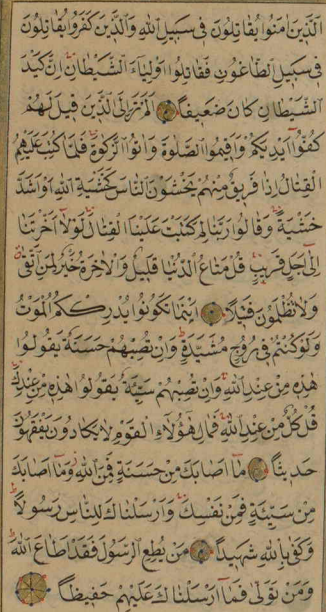 اَلَّذِينَ اٰمَنُوا يُقَاتِلُونَ فِى سَبِيلِ اللّٰهِ وَالَّذِينَ كَفَرُوا يُقَاتِلُونَ
فِى سَبِيلِ الطَّاغُوتِ فَقَاتِلُوا اَوْلِيَاءَ الشَّيْطَانِ اِنَّ كَيْدَ
الشَّيْطَانِ كَانَ ضَعِيفًا اَلَمْ تَرَ اِلَى الَّذِينَ قِيلَ لَهُمْ
كُفُّوا اَيْدِيَكُمْ وَاَقِيمُوا الصَّلٰوةَ وَاٰتُوا الزَّكٰوةَ فَلَمَّا كُتِبَ عَلَيْهِمُ
الْقِتَالُ اِذَا فَرِيقٌ مِنْهُمْ يَخْشَوْنَ النَّاسَ كَخَشْيَةِ اللّٰهِ اَوْ اَشَدَّ
خَشْيَةً وَقَالُوا رَبَّنَا لِمَ كَتَبْتَ عَلَيْنَا الْقِتَالَ لَوْلَا اَخَّرْتَنَا
اِلٰى اَجَلٍ قَرِيبٍ قُلْ مَتَاعُ الدُّنْيَا قَلِيلٌ وَالْاٰخِرَةُ خَيْرٌ لِمَنِ اتَّقٰى
وَلَا تُظْلَمُونَ فَتِيلًا اَيْنَمَا تَكُونُوا يُدْرِكْكُمُ الْمَوْتُ
وَلَوْ كُنْتُمْ فِى بُرُوجٍ مُشَيَّدَةٍ وَاِنْ تُصِبْهُمْ حَسَنَةٌ يَقُولُوا
هٰذِهِ مِنْ عِنْدِ اللّٰهِ وَاِنْ تُصِبْهُمْ سَيِّئَةٌ يَقُولُوا هٰذِهِ مِنْ عِنْدِكَ
قُلْ كُلٌّ مِنْ عِنْدِ اللّٰهِ فَمَالِ هٰؤُلَاءِ الْقَوْمِ لَا يَكَادُونَ يَفْقَهُونَ
حَدِيثًا مَا اَصَابَكَ مِنْ حَسَنَةٍ فَمِنَ اللّٰهِ وَمَا اَصَابَكَ
مِنْ سَيِّئَةٍ فَمِنْ نَفْسِكَ وَاَرْسَلْنَاكَ لِلنَّاسِ رَسُولًا
وَكَفٰى بِاللّٰهِ شَهِيدًا مَنْ يُطِعِ الرَّسُولَ فَقَدْ اَطَاعَ اللّٰهَ
وَمَنْ تَوَلّٰى فَمَا اَرْسَلْنَاكَ عَلَيْهِمْ حَفِيظًا